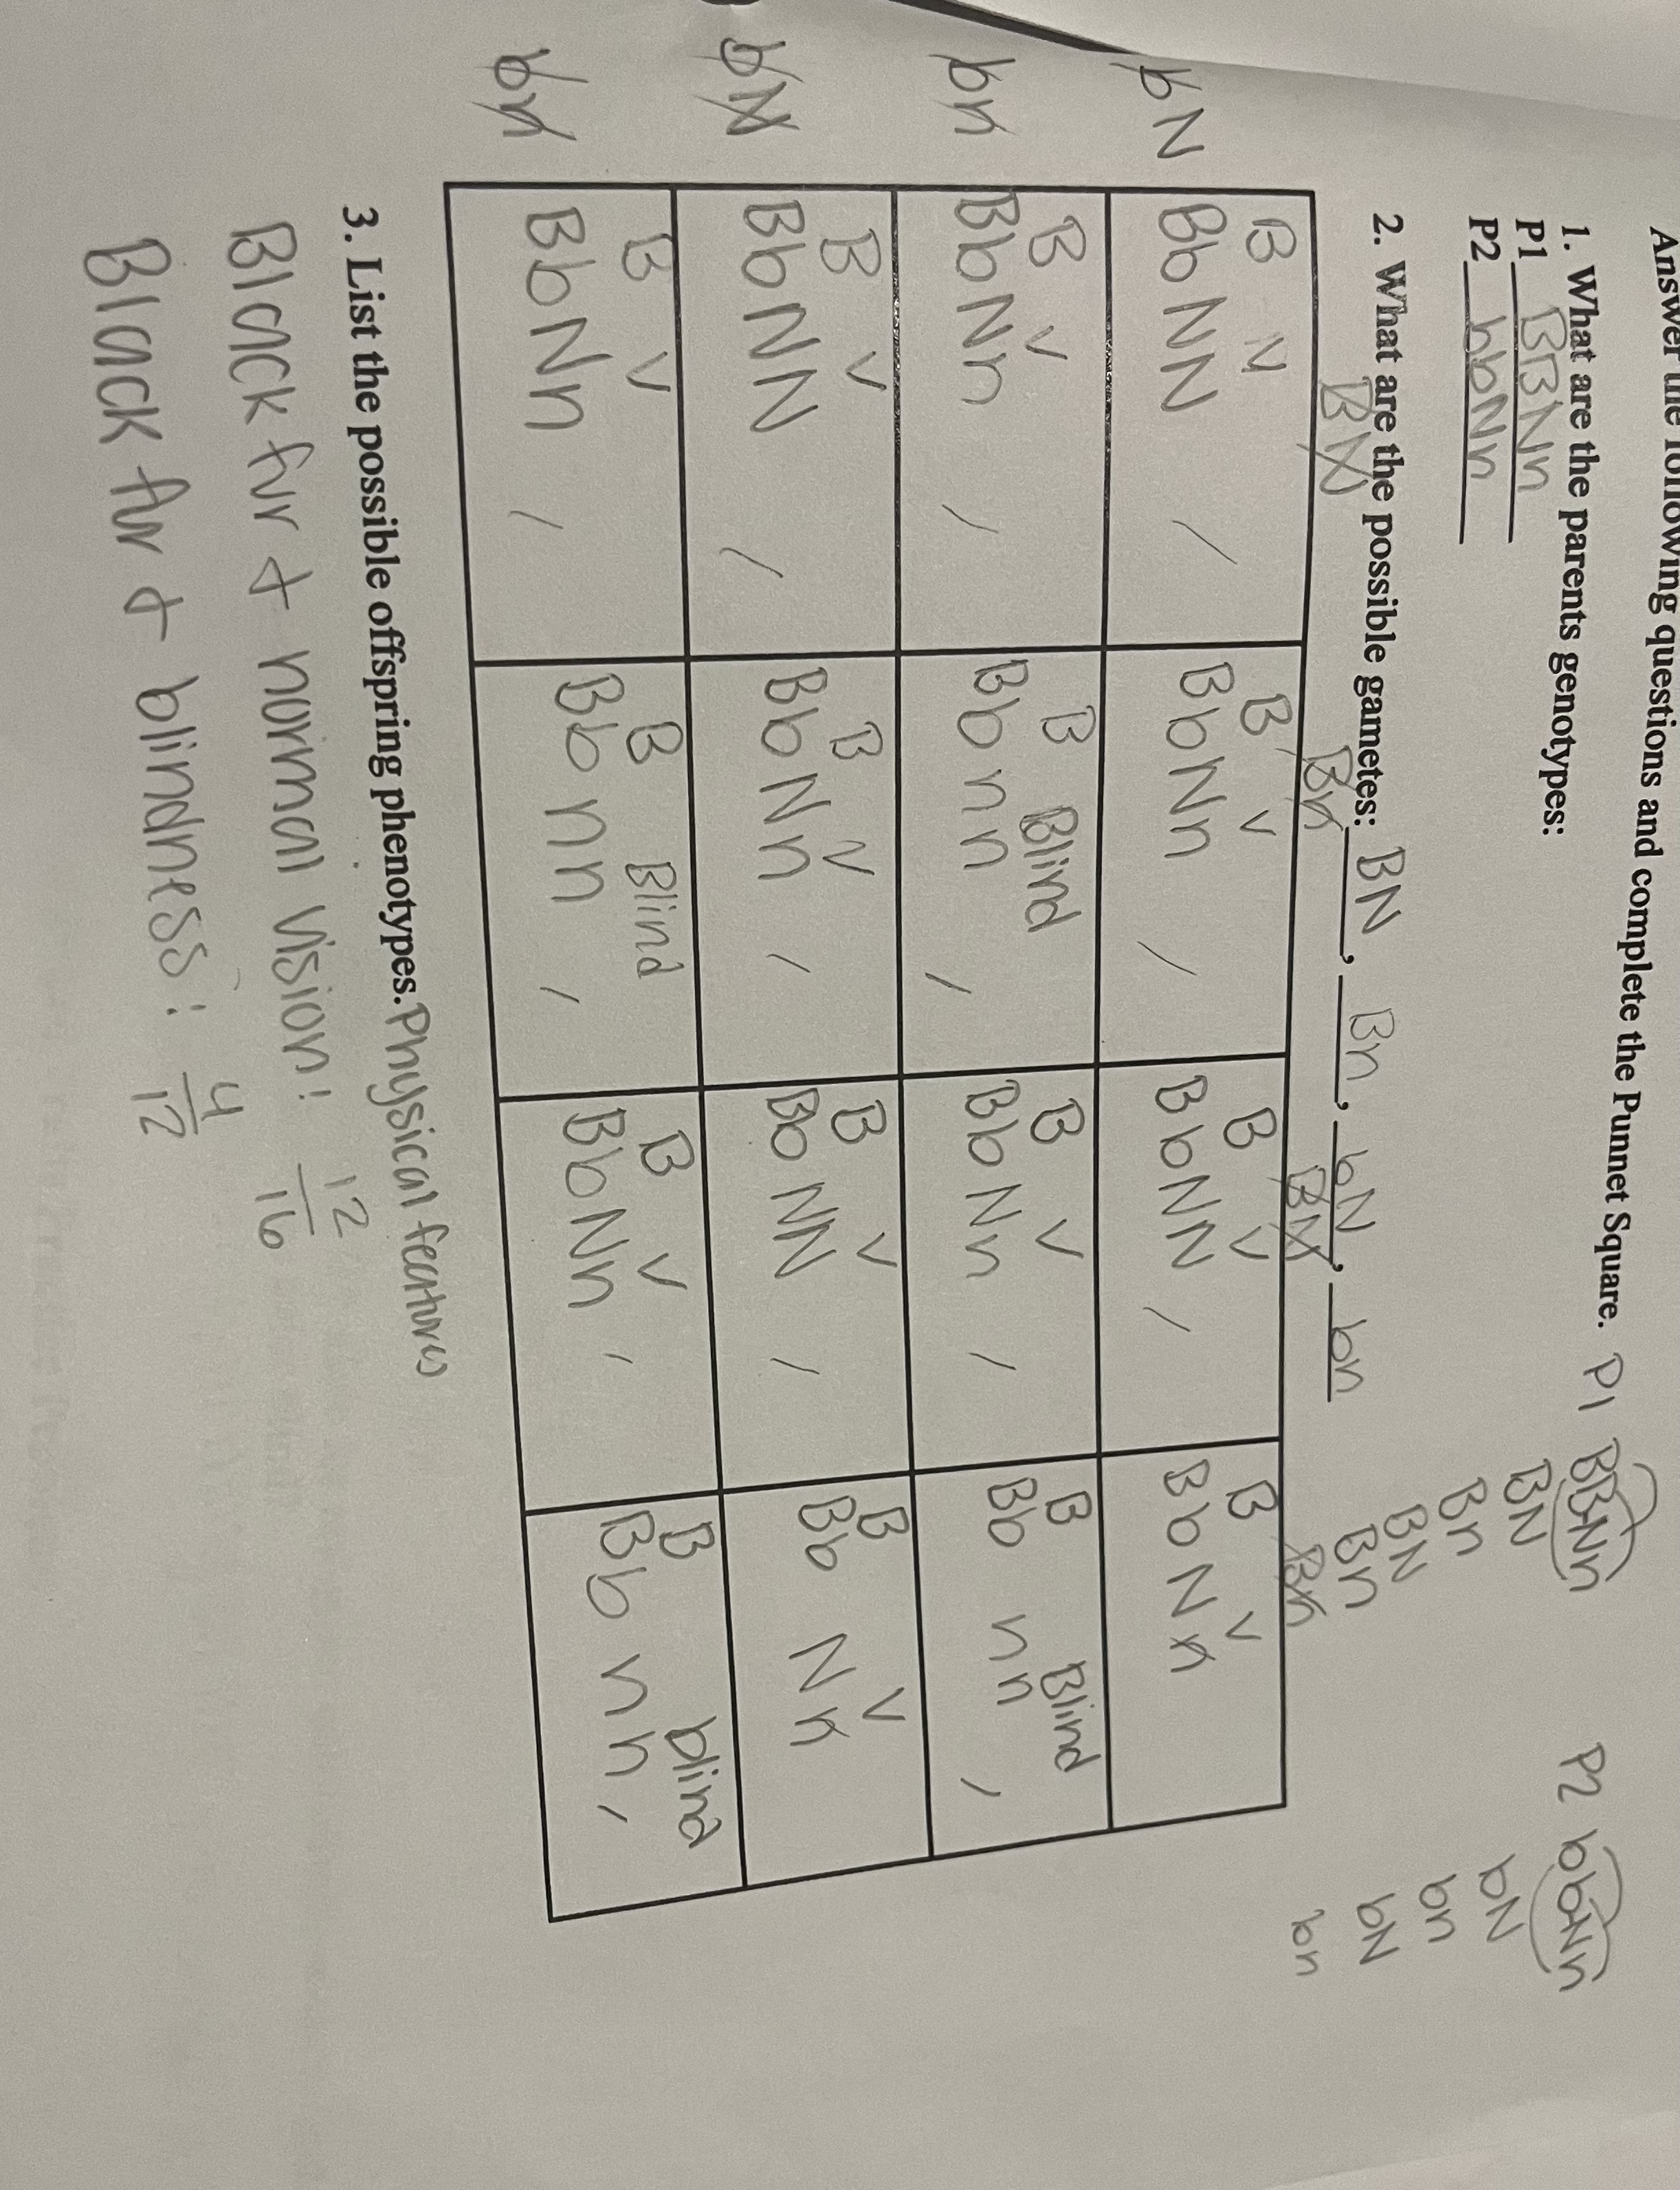 Answer the following questions and complete the Punnet Square. P1 BBNn P2 bbNn
BN bN
Bn bn
BN bN
Bn bn
1. What are the parents genotypes:
P1 BBNn
P2 bbNn
2. What are the possible gametes: BN, Bn, bN, bn
BN Bn BN Bn
B V B V B V B V
bN BbNN BbNn BbNN BbNn
B V B Blind B V B Blind
bn BbNn Bbnn BbNn Bbnn
B V B V B V B V
bN BbNN BbNn BbNN BbNn
B V B Blind B V B blind
bn BbNn Bbnn BbNn Bbnn
3. List the possible offspring phenotypes. Physical features
Black fur + normal vision: 12/16
Black fur + blindness: 4/12